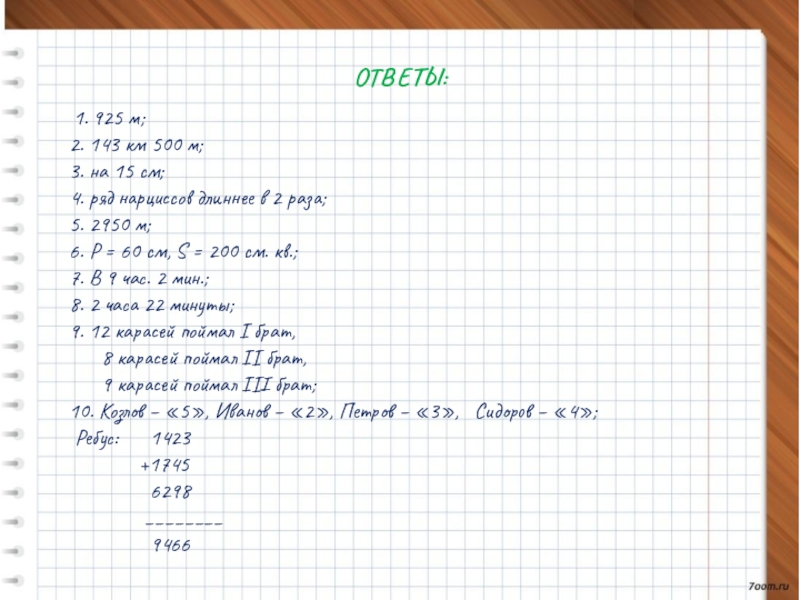 ОТВЕТЫ:
1. 925 м;
2. 143 км 500 м;
3. на 15 см;
4. ряд нарциссов длиннее в 2 раза;
5. 2950 м;
6. P = 60 см, S = 200 см. кв.;
7. В 9 час. 2 мин.;
8. 2 часа 22 минуты;
9. 12 карасей поймал I брат,
8 карасей поймал II брат,
9 карасей поймал III брат;
10. Козлов – «5», Иванов – «2», Петров – «3», Сидоров – «4»;
Ребус: 1423
+1745
6298
________
9466
7oom.ru